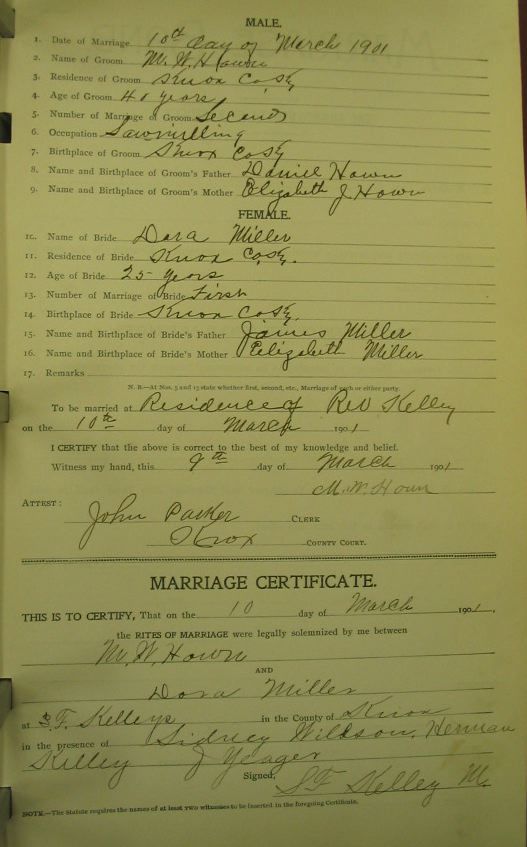 MALE.
1. Date of Marriage 10th day of March 1901
2. Name of Groom M. W. Hown
3. Residence of Groom Knox Co Ky
4. Age of Groom 40 years
5. Number of Marriage of Groom Second
6. Occupation Sawmilling
7. Birthplace of Groom Knox Co Ky
8. Name and Birthplace of Groom's Father Daniel Hown
9. Name and Birthplace of Groom's Mother Elizabeth J Hown
FEMALE.
10. Name of Bride Dora Miller
11. Residence of Bride Knox Co, Ky.
12. Age of Bride 25 years
13. Number of Marriage of Bride First
14. Birthplace of Bride Knox Co Ky.
15. Name and Birthplace of Bride's Father James Miller
16. Name and Birthplace of Bride's Mother Eelizabeth Miller
17. Remarks
N. B.—At Nos. 5 and 13 state whether first, second, etc., Marriage of each or either party.
To be married at Residence of Rev Kelley
on the 10th day of March 1901
I CERTIFY that the above is correct to the best of my knowledge and belief.
Witness my hand, this 9th day of March 1901
M. W. Hown
ATTEST:
John Parker CLERK
Knox COUNTY COURT.
MARRIAGE CERTIFICATE.
THIS IS TO CERTIFY, That on the 10 day of March 1901,
the RITES OF MARRIAGE were legally solemnized by me between
M. W. Hown
AND
Dora Miller
at S. F. Kelleys in the County of Knox
in the presence of Sidney Wildson, Herman
Kelley J Yeager
Signed, S F Kelley M.
NOTE.—The Statute requires the names of at least two witnesses to be inserted in the foregoing Certificate.